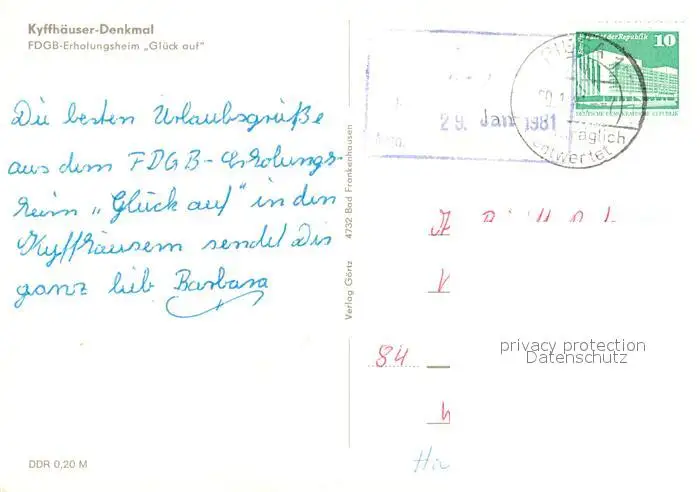 Kyffhäuser-Denkmal
FDGB-Erholungsheim „Glück auf"
Die besten Urlaubsgrüße
aus dem FDGB-Erholungs-
heim „Glück auf" in den
Kyffhäusern sendet Dir
ganz lieb Barbara
DDR 0,20 M
Verlag Görtz 4732 Bad Frankenhausen
29. Jan. 1981
der Republik 10
DEUTSCHE DEMOKRATISCHE REPUBLIK
RIESA 1
äglich
entwertet
84
privacy protection
Datenschutz